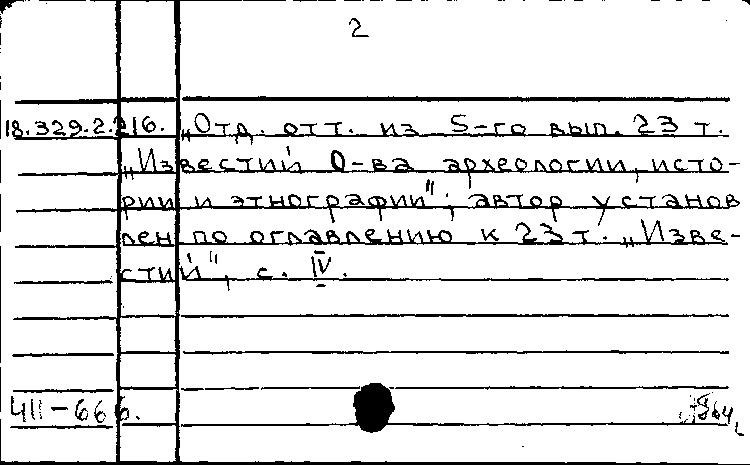 2
18.329.2.216. „Отд. отт. из 5-го вып. 23 т.
„Известий О-ва археологии, исто-
рии и этнографии"; автор установ
лен по оглавлению к 23 т. „Изве-
стий", с. IV.
411-666.